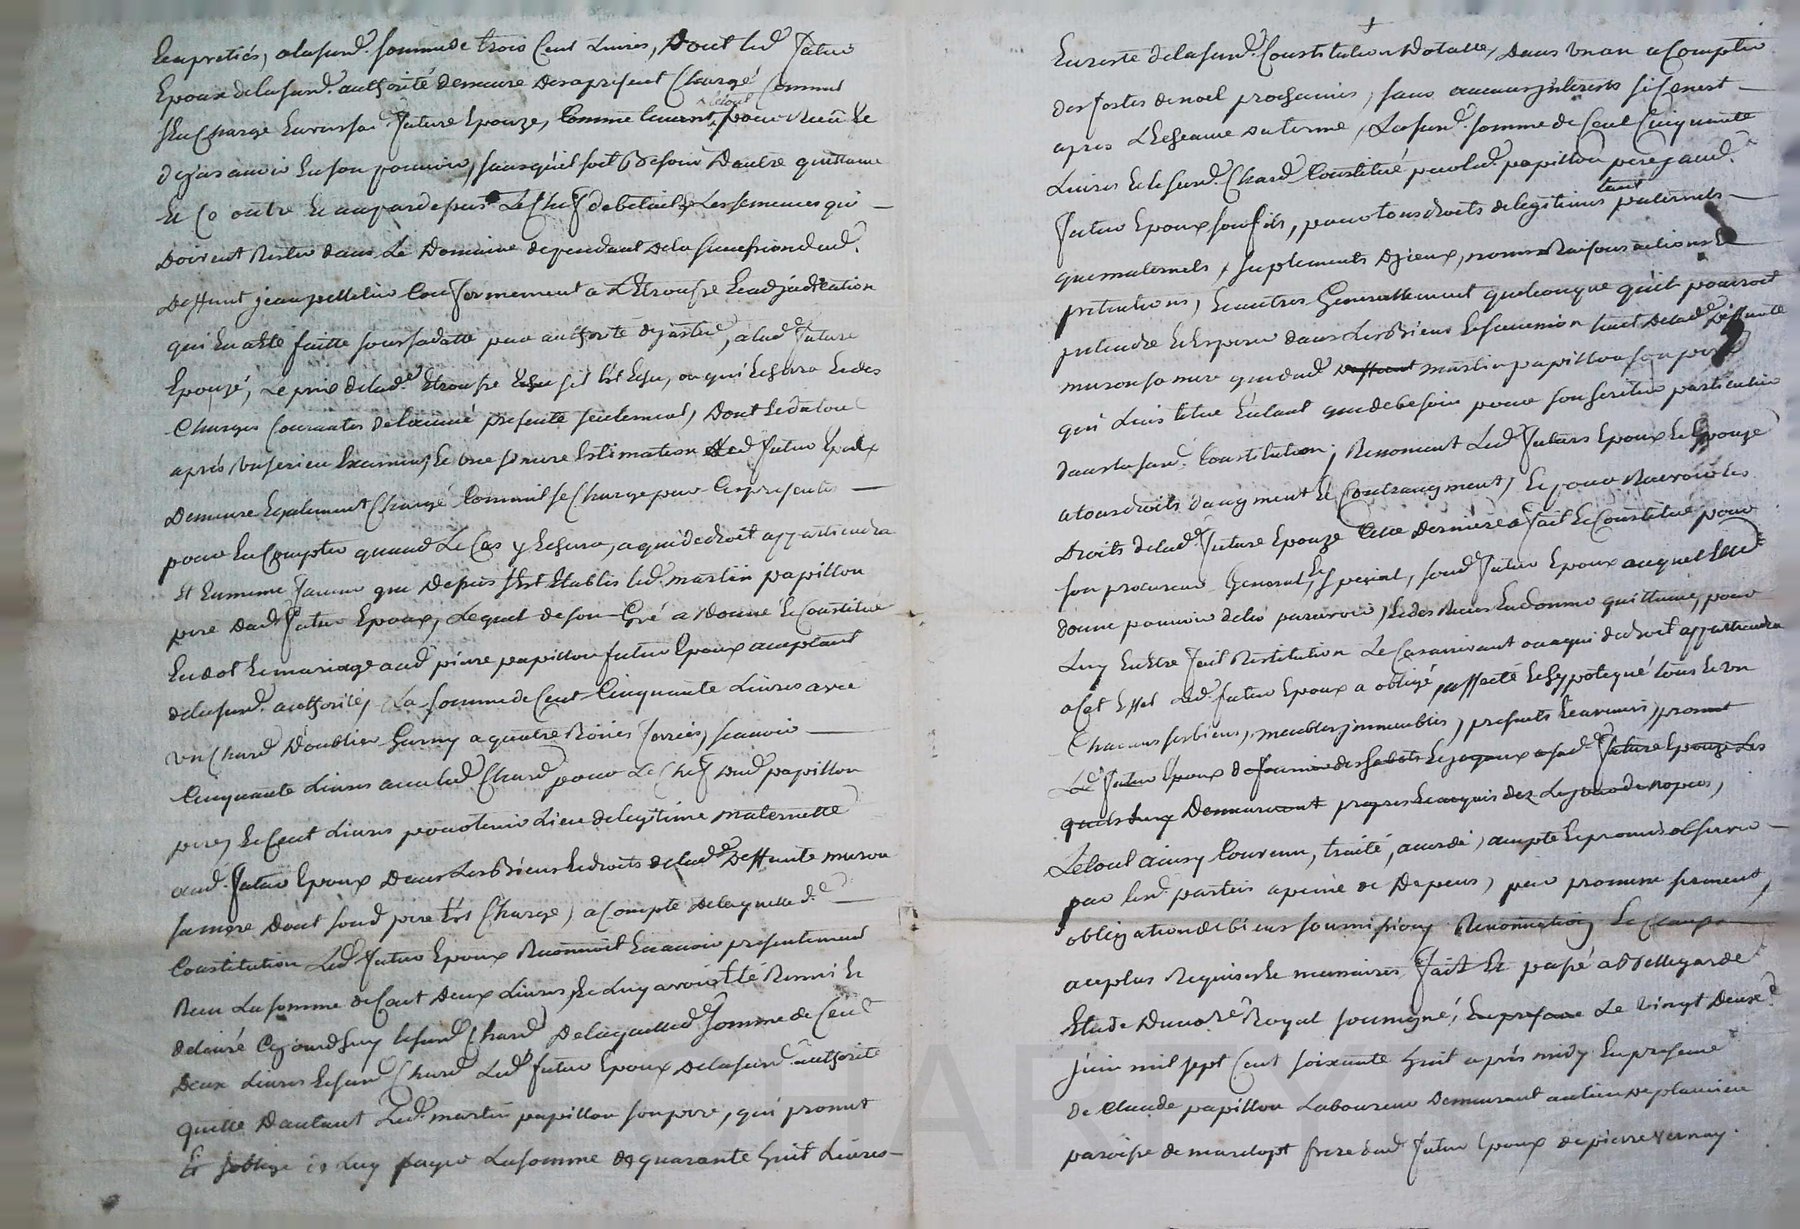 apretiés, a la susd. somme de trois Cent Livres, Dont led futur
Epoux de la susd. authorité demeure des apresent Chargé Comme
sen Charge Envers sa future Epouze, Comme layant, pour Reel le
dejas avoir En son pouvoir, sans qu'il soit Besoin Dautre quittance
Et Ce outre Et au par depus Le Cheps de betail & Les semences qui
Doivent Rester dans Le Domaine dependant De la succession dud.
Deffunt jean pelletier Conformement a L'Etrousse Et adjudication
qui En a Eté faitte sous sa datte par authorité de justice, a lad future
Epouze, Le prix de lad. Etrousse Echu s'il Est Echu, ou qui Echera Et des
Charges Courantes de l'année presente seulement, Dont
après un serieu Examen, Et une seure Estimation led futur Epoux
Demeure Egalement Chargé Comme il se Charge pour les presentes
pour En Compter quand Le Cas y Echera, a qui de droit appartiendra
Et En meme faveur que Depus s'Est Etablis led. martin papillon
pere Dud futur Epoux, Lequel de son Gré a Donné Et Constitué
En dot Et mariage aud pierre papillon futur Epoux acceptant
de la susd. authorité, La somme de Cent Cinquante Livres avec
un Chard Doublier Garny a quatre Roües ferrées, scavoir
Cinquante Livres avec led Chard pour Le Chef Dud papillon
pere, Et Cent Livres pour tenir Lieu de legitime maternelle
aud. futur Epoux Dans Les Biens Et droits de lad. Deffunte
sa mere Dont sond pere Est Chargé, a Compte De laquelle d.
Constitution Led futur Epoux Reconnoit En avoir presentement
Reçu La somme de Cent Deux Livres, Et Luy avoir Eté Remis Et
delivré Cejourd'huy le susd Chard De laquelle d. somme de Cent
Deux Livres Et susd Chard Led futur Epoux De la susd. authorité
quitte D'autant Led. martin papillon son pere, qui promet
Et s'oblige de Luy payer La somme de quarante huit Livres
En reste de la susd. Constitution Dotalle, Dans un an a Compter
des festes de noel prochaines, sans aucuns jnterests si Ce n'est
apres L'Echeance du terme, La susd. somme de Cent Cinquante
Livres Et le susd. Chard Constitué par led. papillon pere, aud.
futur Epoux son fils, pour tous droits de legitimes tant paternels
que maternels, suplements D'jceux, noms Raisons actions Et
pretentions, Et autres Generallement quelconque qu'il pourroit
pretendre Et Esperer dans Les Biens Et succession tant De lad. Deffunte
sa mere que dud. Deffunt martin papillon son pere
qui L'institue En tant que de besoin pour son heritier particulier
dans la susd. Constitution, Renoncent Led. futurs Epoux Et Epouze
a tous droits d'augment Et Contraugment, Et pour Recevoir Les
Droits de lad. future Epouze Cette Derniere a fait Et Constitué pour
son procureur General, Et special, sond futur Epoux auquel Elle
donne pouvoir de les percevoir, Et des Reçus En donner quittance, pour
Luy En Etre fait Restitution Le Cas arrivant ou a qui de droit appartiendra
a Cet Effet Led. futur Epoux a obligé, affecté Et hypotequé tous Et un
Chacuns ses biens, meubles jmmeubles, presents Et avenirs, promet
Led futur Epoux de fournir des habits Et joyaux a sad. future Epouze Les
quels Luy Demeureront propres Et acquis dez Le jour des nopces,
Le tout ainsy Convenu, traité, acordé, accepté Et promis observer
par Lesd. parties a peine de Depens, par promesse serment,
obligation de biens soumissions Renonciations Et Clauses
au plus Requises Et necessaires fait Et passé a Bellegarde
Etude Du no.re Royal soussigné, Le vingt Deux.e
juin mil sept Cent soixante huit après midy En presence
de Claude papillon Laboureur Demeurant au lieu De
paroisse de marclopt frere dud futur Epoux de pierre vernay.